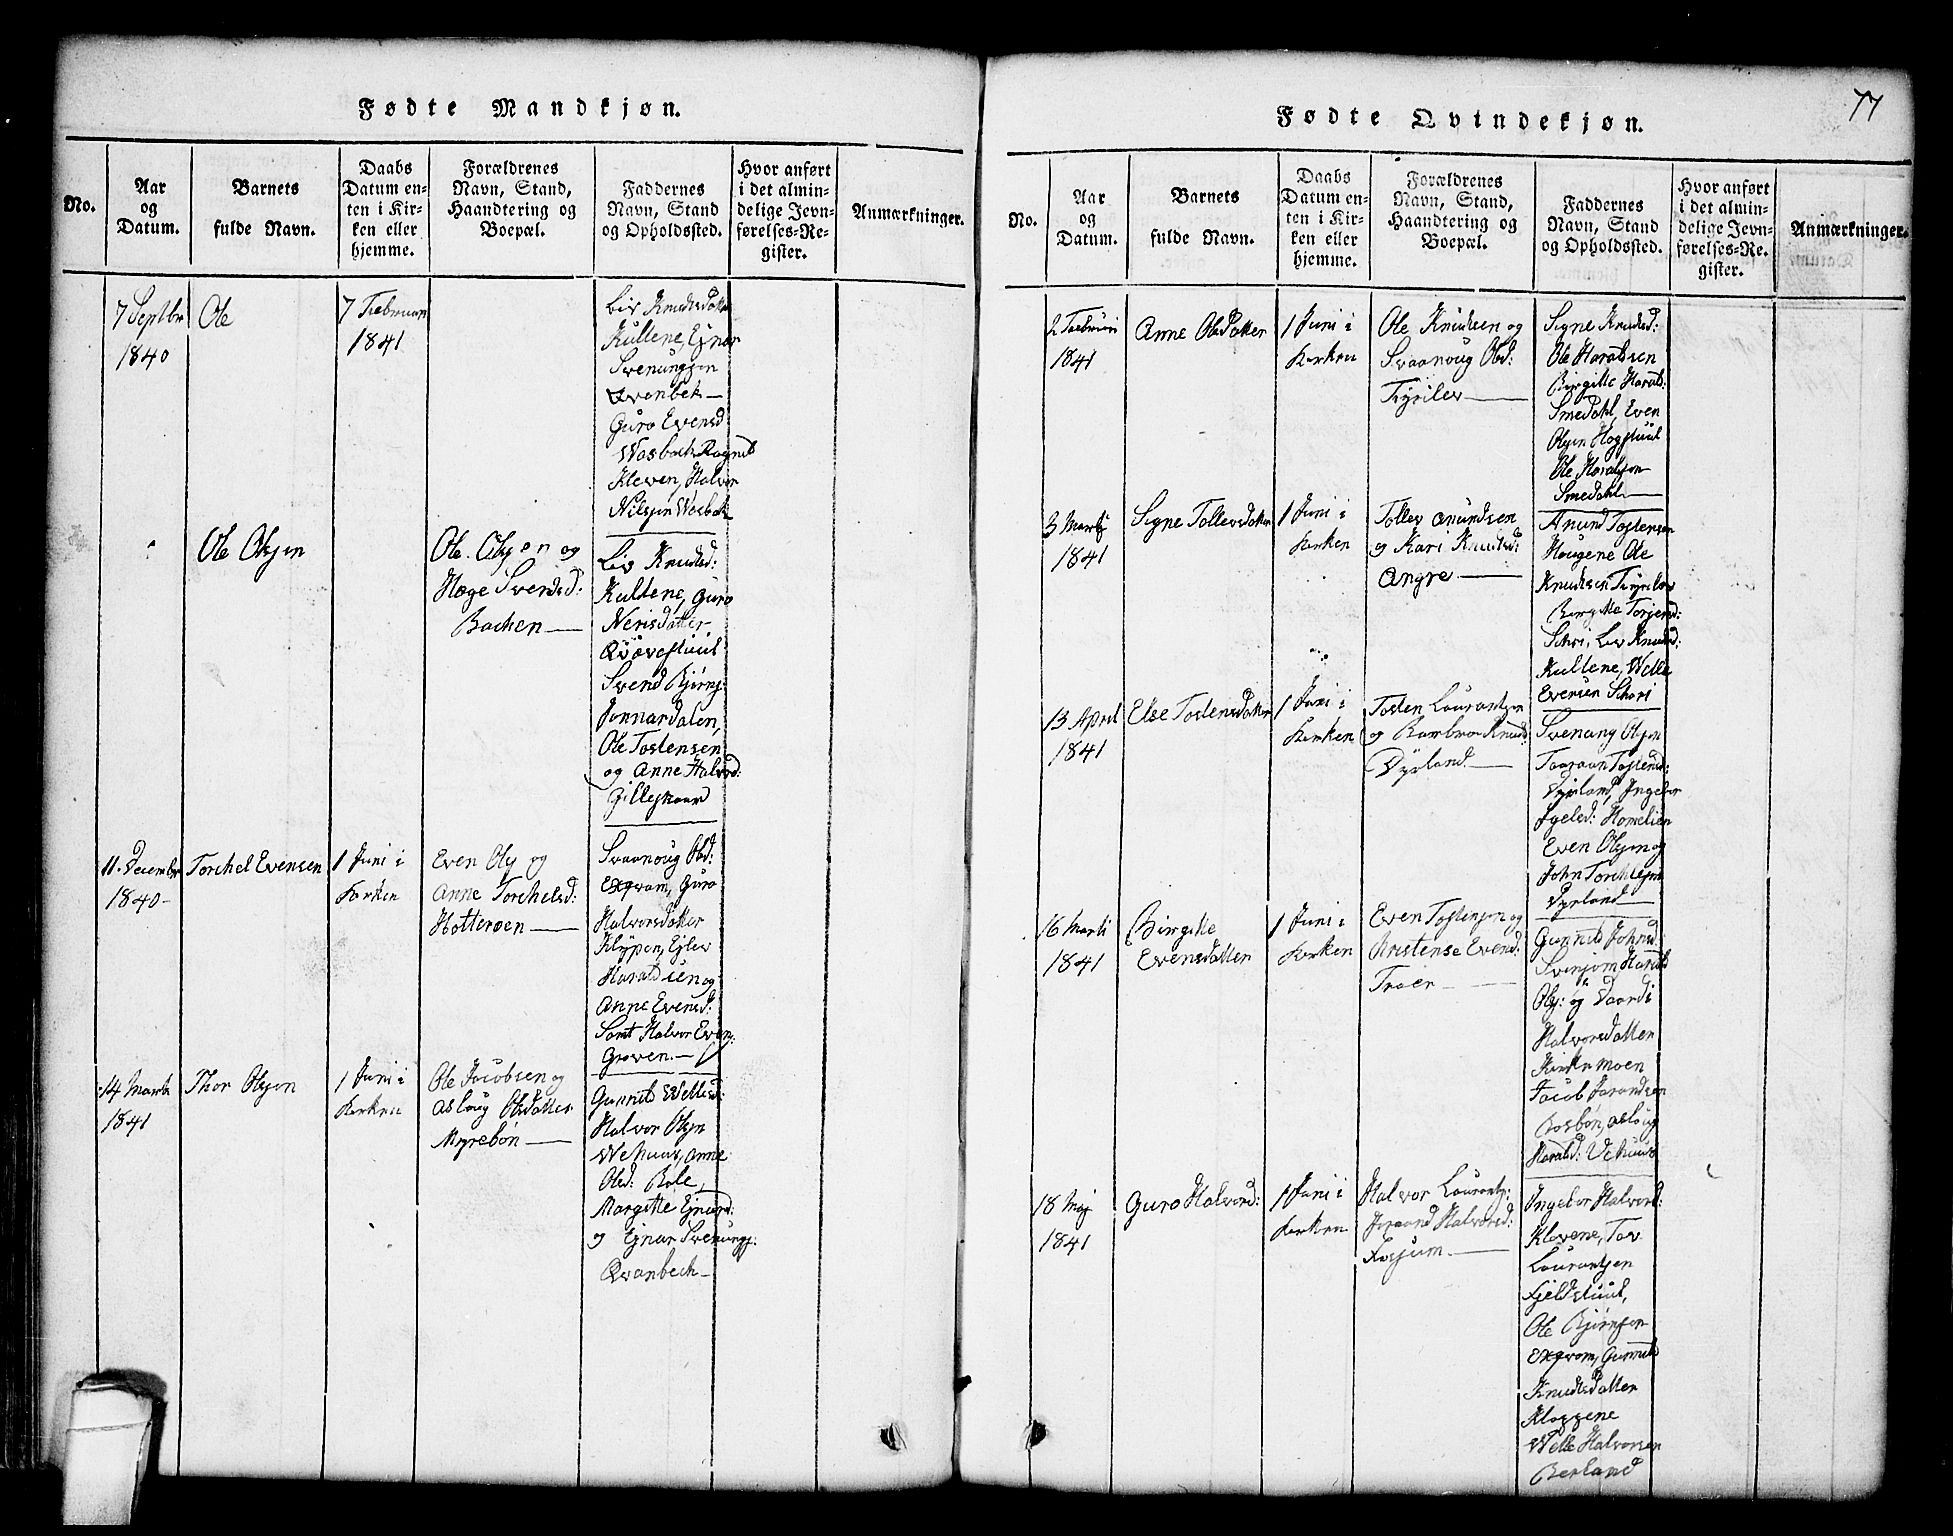 Fødte Mandkjøn.
No.
Aar
og
Datum.
Barnets
fulde Navn.
Daabs
Datum en-
ten i Kir-
ken eller
hjemme.
Forældrenes
Navn, Stand,
Haandtering og
Boepæl.
Faddernes
Navn, Stand
og Opholdssted.
Hvor anført
i det almin-
delige Jevn-
førelses-Re-
gister.
Anmærkninger.
7 Septbr
1840
Ole
7 Februar
1841
Liv Knudsdatter
Kultene, Ejnar
Svenungsen
Qvenbek
Guro Evensd:
Wasbæk Ragnild
Kleven, Halvor
Nilsjen Wesbæk
Ole Olsjen
Ole Olsjen og
Hæge Svendsd:
Backen
Liv Knudsd:
Kultene, Guro
Nerisdatter
Svend Bjørnj:
Jonnardalen,
Ole Tostensen
og Anne Halvord:
Gilleskaard
11. December
1840
Torchel Evensen
1 Juni i
Kerken
Even Olj og
Anne Torchelsd:
Hotteroen
Svaanoug Olsd:
Exqvam, Guro
Halvorsdatter
Klypen, Ejlev
Haraldsen og
Anne Evensd:
Samt Halvor Even:
Graven.
14 Marti
1841
Thor Olsjen
1 Juni i
Kerken
Ole Jacobsen og
Asloug Olsdatter
Myrebøn
Gunnild Wettesd:
Halvor Olsjn
Wehuus, Anne
Olsd: Bøle,
Margitte Ejnard:
og Ejnar Svenungj:
Qvanbech
Fødte Qvindekjøn.
77
No.
Aar
og
Datum.
Barnets
fulde Navn.
Daabs
Datum en-
ten i Kir-
ken eller
hjemme.
Forældrenes
Navn, Stand,
Haandtering og
Boepæl.
Faddernes
Navn, Stand
og Opholdssted.
Hvor anført
i det almin-
delige Jevn-
førelses-Re-
gister.
Anmærkninger.
2 Februari
1841
Anne Olsdatter
1 Juni i
Kerken
Ole Knudsen og
Svaanoug Olsd:
Tyrilev
Signe Knudsd:
Ole Haraldsen
Birgitte Harald:
Smedahl, Even
Olsjen Hogstuul
Ole Haraldsen
Smedahl
3 Marti
1841
Signe Tollevsdatter
1 Juni i
Kerken
Tollev Anundsen
og Kari Knudsd:
Angre
Anund Tostensen
Haugene Ole
Knudsen Tyrilev
Birgitte Torjensd:
Schri, Liv Knudsd:
Kultene, Wetle
Evensen Schori
13 April
1841
Else Tostensdatter
1 Juni i
Kerken
Tosten Laurantsen
og Barbro Knud:
Dyrland
Svenung Olsjen
Taaraan Tostensd:
Dyrland, Ingebor
Jgelsd: Homelien
Even Olsjen og
John Torchelsen
Dyrland
16 Marti
1841
Birgitte
Evensdatter
1 Juni i
Kerken
Even Tostensjen og
Kristense Evensd:
Traer
Gunnild Johnsd:
Svinjom Harald
Olsj: og Taardi
Halvorsdatter
Kirkemoen
Jacob Jorandsen
Bosbøn, Asloug
Harald: Vehuus
18 Maj
1841
Guro Halvord:
1 Juni i
Kerken
Halvor Laurantsj:
Joraand Halvorsd:
Fosjum.
Ingebor Halvord:
Klovene, Tov
Laurantsen
Fjeldstuul,
Ole Bjørnsen
Exqvam, Gunnild
Knudtsdatter
Kloggene
Wetle Halvorsen
Berland